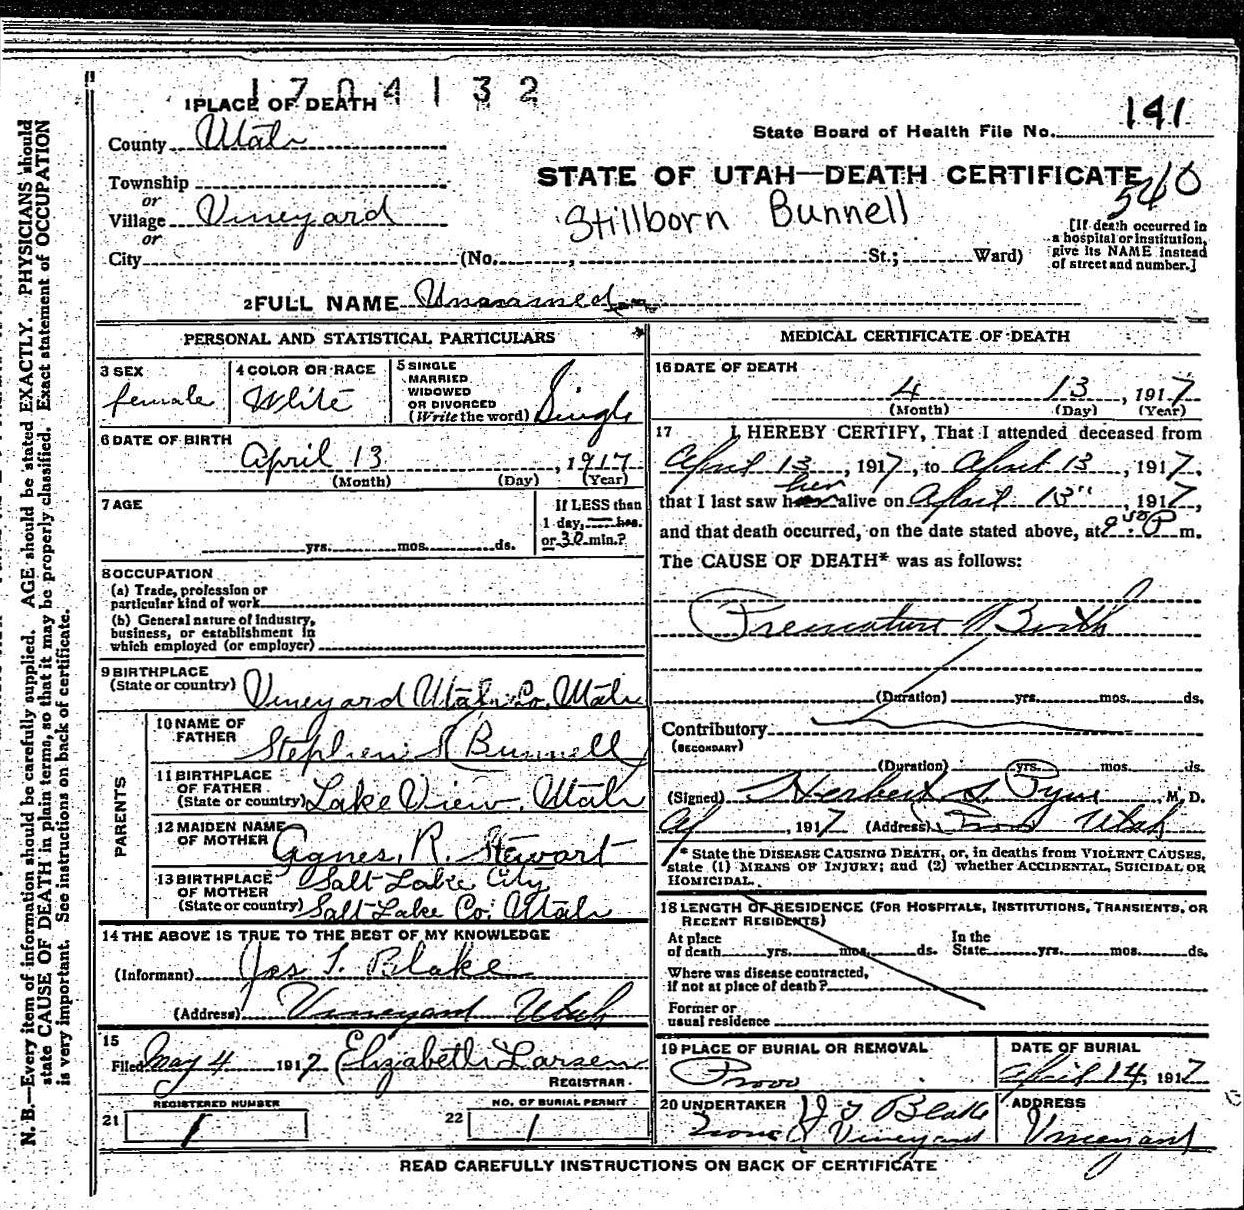 1704132
1 PLACE OF DEATH
County Utah
State Board of Health File No. 141
Township
or
Village Vineyard
or
City (No. , St.; Ward)
STATE OF UTAH—DEATH CERTIFICATE
540
Stillborn Bunnell
[If death occurred in
a hospital or institution,
give its NAME instead
of street and number.]
2 FULL NAME Unnamed
PERSONAL AND STATISTICAL PARTICULARS
3 SEX
female
4 COLOR OR RACE
White
5 SINGLE
MARRIED
WIDOWED
OR DIVORCED
(Write the word) Single
6 DATE OF BIRTH
April 13, 1917
(Month) (Day) (Year)
7 AGE
yrs. mos. ds.
If LESS than
1 day, — hrs.
or 30 min.?
8 OCCUPATION
(a) Trade, profession or
particular kind of work
(b) General nature of Industry,
business, or establishment in
which employed (or employer)
9 BIRTHPLACE
(State or country) Vineyard Utah Co, Utah
PARENTS
10 NAME OF
FATHER Stephen S Bunnell
11 BIRTHPLACE
OF FATHER
(State or country) Lake View, Utah
12 MAIDEN NAME
OF MOTHER Agnes, R. Stewart
13 BIRTHPLACE
OF MOTHER
(State or country)
Salt Lake City
Salt Lake Co: Utah
14 THE ABOVE IS TRUE TO THE BEST OF MY KNOWLEDGE
(Informant) Jos T. Blake
(Address) Vineyard Utah
15
Filed May 4 1917 Elizabeth Larsen
REGISTRAR.
21 REGISTERED NUMBER
1
22 NO. OF BURIAL PERMIT
1
MEDICAL CERTIFICATE OF DEATH
16 DATE OF DEATH
4 13, 1917
(Month) (Day) (Year)
17 I HEREBY CERTIFY, That I attended deceased from
April 13, 1917, to April 13, 1917,
that I last saw her alive on April 13", 1917,
and that death occurred, on the date stated above, at 9:50 P m.
The CAUSE OF DEATH* was as follows:
Premature Birth
(Duration) yrs. mos. ds.
Contributory
(SECONDARY)
(Duration) yrs. mos. ds.
(Signed) Herbert S. Pyne, M. D.
Ap, 1917 (Address) Provo Utah
* State the DISEASE CAUSING DEATH, or, in deaths from VIOLENT CAUSES,
state (1) MEANS OF INJURY; and (2) whether ACCIDENTAL, SUICIDAL OR
HOMICIDAL.
18 LENGTH OF RESIDENCE (FOR HOSPITALS, INSTITUTIONS, TRANSIENTS, OR
RECENT RESIDENTS)
At place
of death yrs. mos. ds.
In the
State yrs. mos. ds.
Where was disease contracted,
if not at place of death?
Former or
usual residence
19 PLACE OF BURIAL OR REMOVAL
Provo
DATE OF BURIAL
April 14, 1917
20 UNDERTAKER J T Blake
Vineyard
ADDRESS
Vineyard
READ CAREFULLY INSTRUCTIONS ON BACK OF CERTIFICATE
N. B.—Every item of information should be carefully supplied. AGE should be stated EXACTLY. PHYSICIANS should
state CAUSE OF DEATH in plain terms, so that it may be properly classified. Exact statement of OCCUPATION
is very important. See instructions on back of certificate.